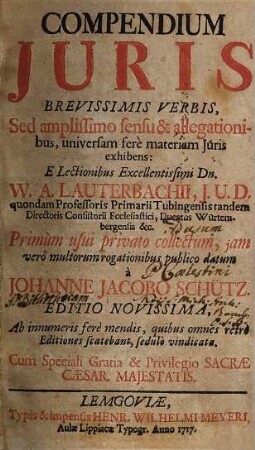 COMPENDIUM
JURIS
BREVISSIMIS VERBIS,
Sed amplissimo sensu & allegationi-
bus, universam ferè materiam Juris
exhibens:
E Lectionibus Excellentissimi Dn.
W. A. LAUTERBACHII, J. U. D.
quondam Professoris Primarii Tubingensis tandem
Directoris Consistorii Ecclesiastici, Ducatus Würtem-
bergensis &c.
Ad usum
Primùm usui privato collectum, jam
verò multorum rogationibus publico datum
à
P. Cælestini
JOHANNE JACOBO SCHÜTZ.
EDITIO NOVISSIMA,
Ab innumeris ferè mendis, quibus omnes retrò
Editiones scatebant, sedulò vindicata.
Cum Speciali Gratia & Privilegio SACRÆ
CÆSAR. MAJESTATIS.
LEMGOVIÆ,
Typis & impensis HENR. WILHELMI MEYERI,
Aulæ Lippiacæ Typogr. Anno 1717.